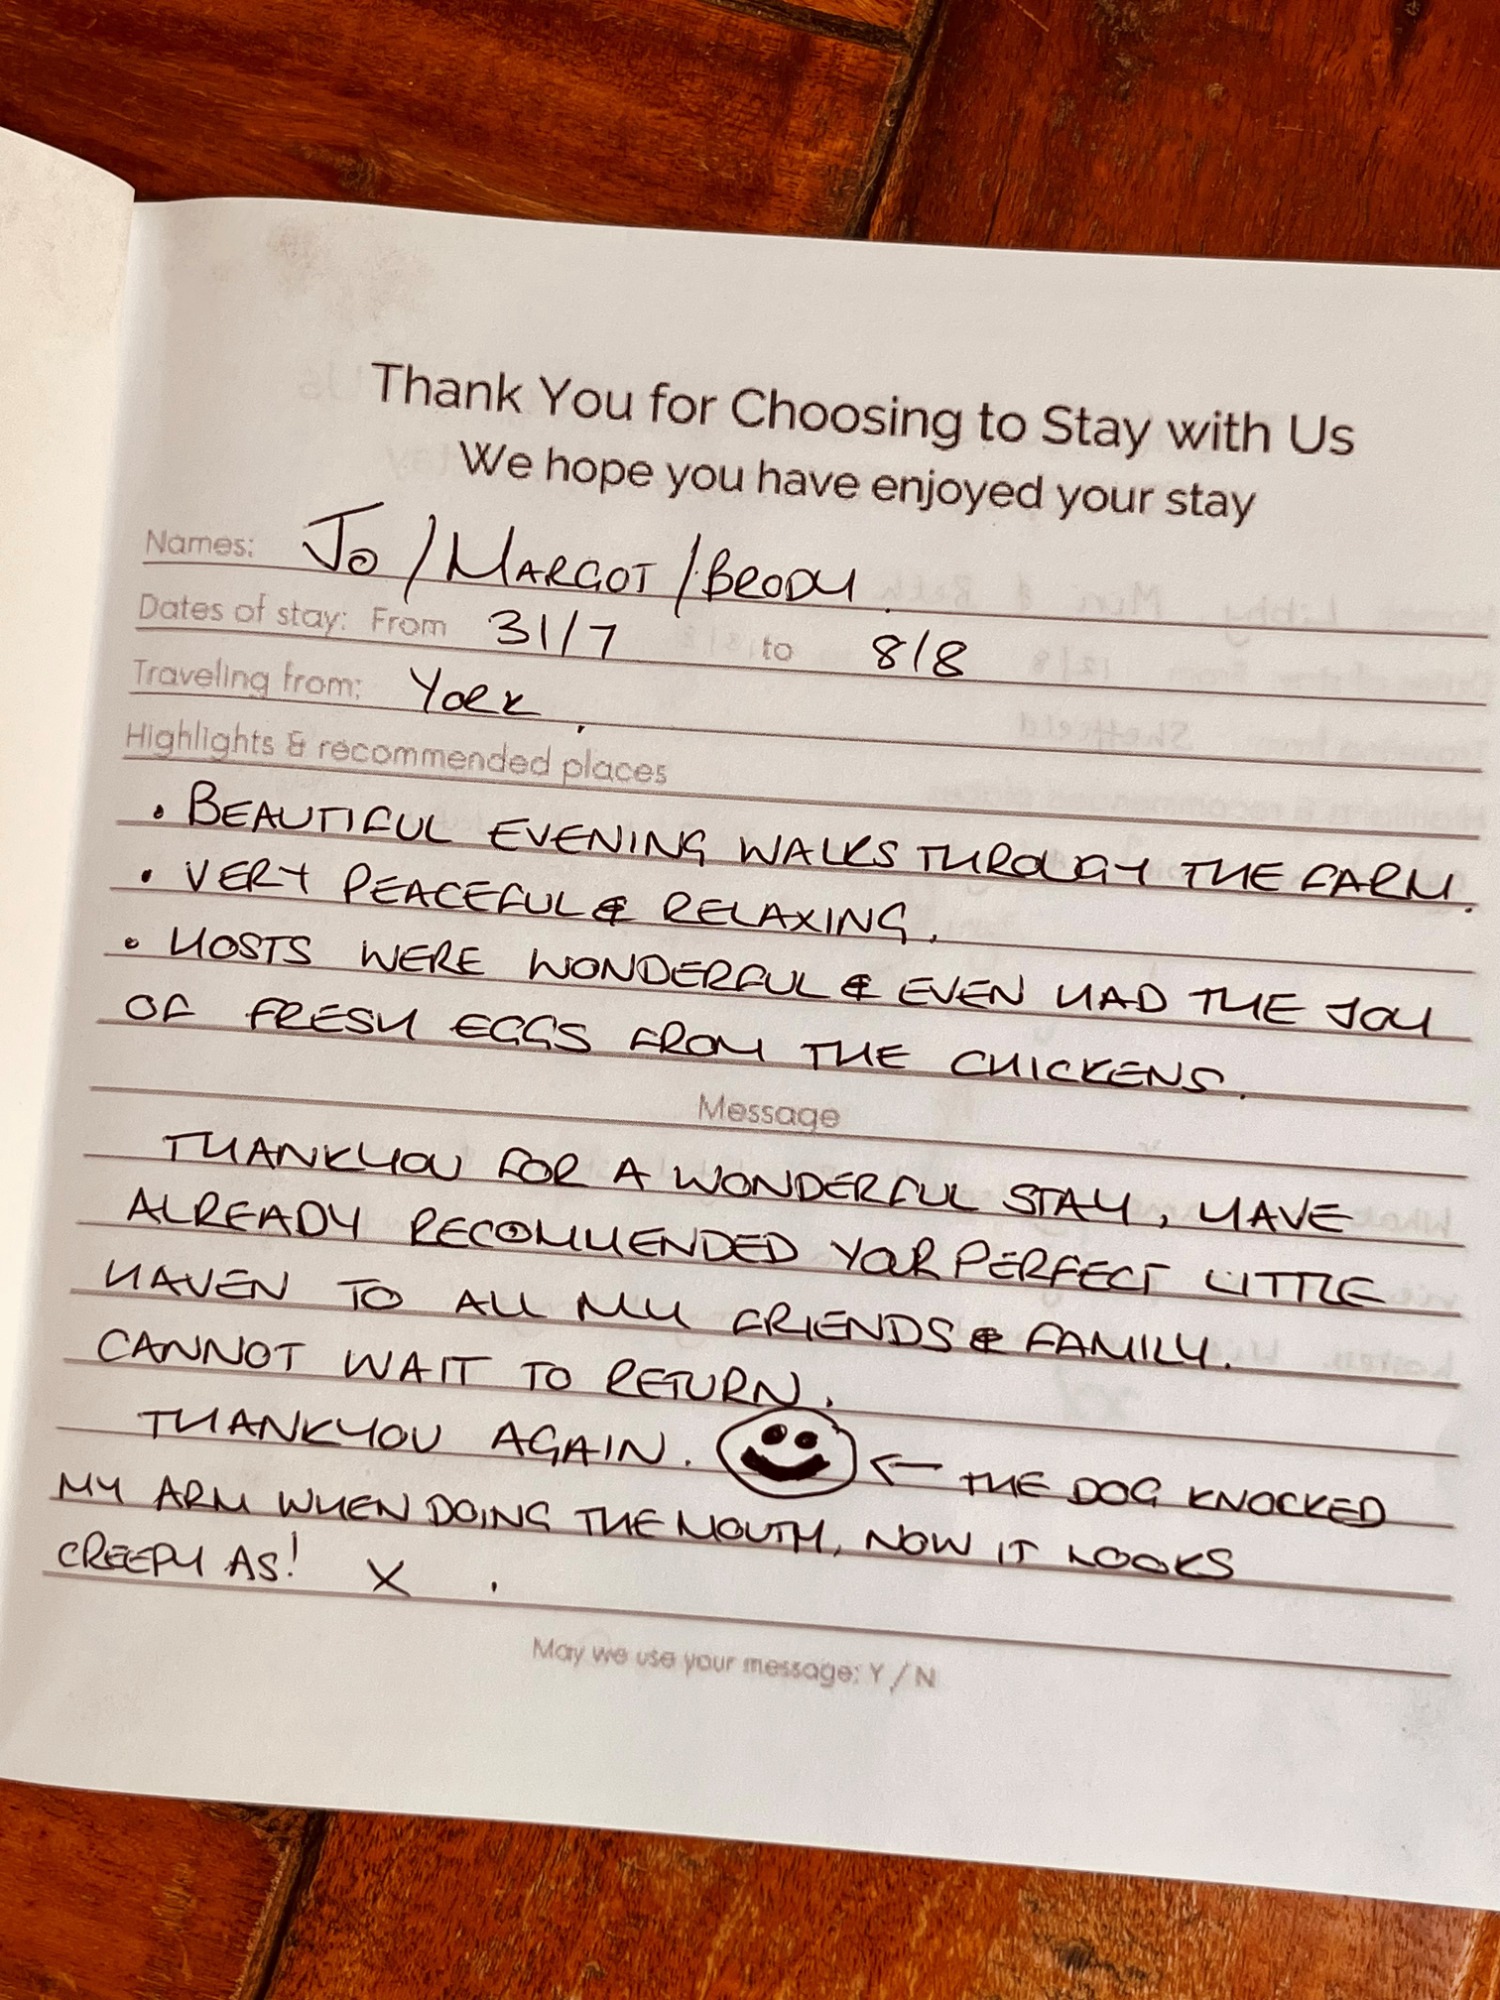 Thank You for Choosing to Stay with Us
We hope you have enjoyed your stay
Names: Jo / MARGOT / BRODY.
Dates of stay: From 31/7 to 8/8
Traveling from: YORK.
Highlights & recommended places
• BEAUTIFUL EVENING WALKS THROUGH THE FARM.
• VERY PEACEFUL & RELAXING.
• HOSTS WERE WONDERFUL & EVEN HAD THE JOY
OF FRESH EGGS FROM THE CHICKENS.
Message
THANKYOU FOR A WONDERFUL STAY, HAVE
ALREADY RECOMMENDED YOUR PERFECT LITTLE
HAVEN TO ALL MY FRIENDS & FAMILY.
CANNOT WAIT TO RETURN.
THANKYOU AGAIN. ← THE DOG KNOCKED
MY ARM WHEN DOING THE MOUTH, NOW IT LOOKS
CREEPY AS! X .
May we use your message: Y / N